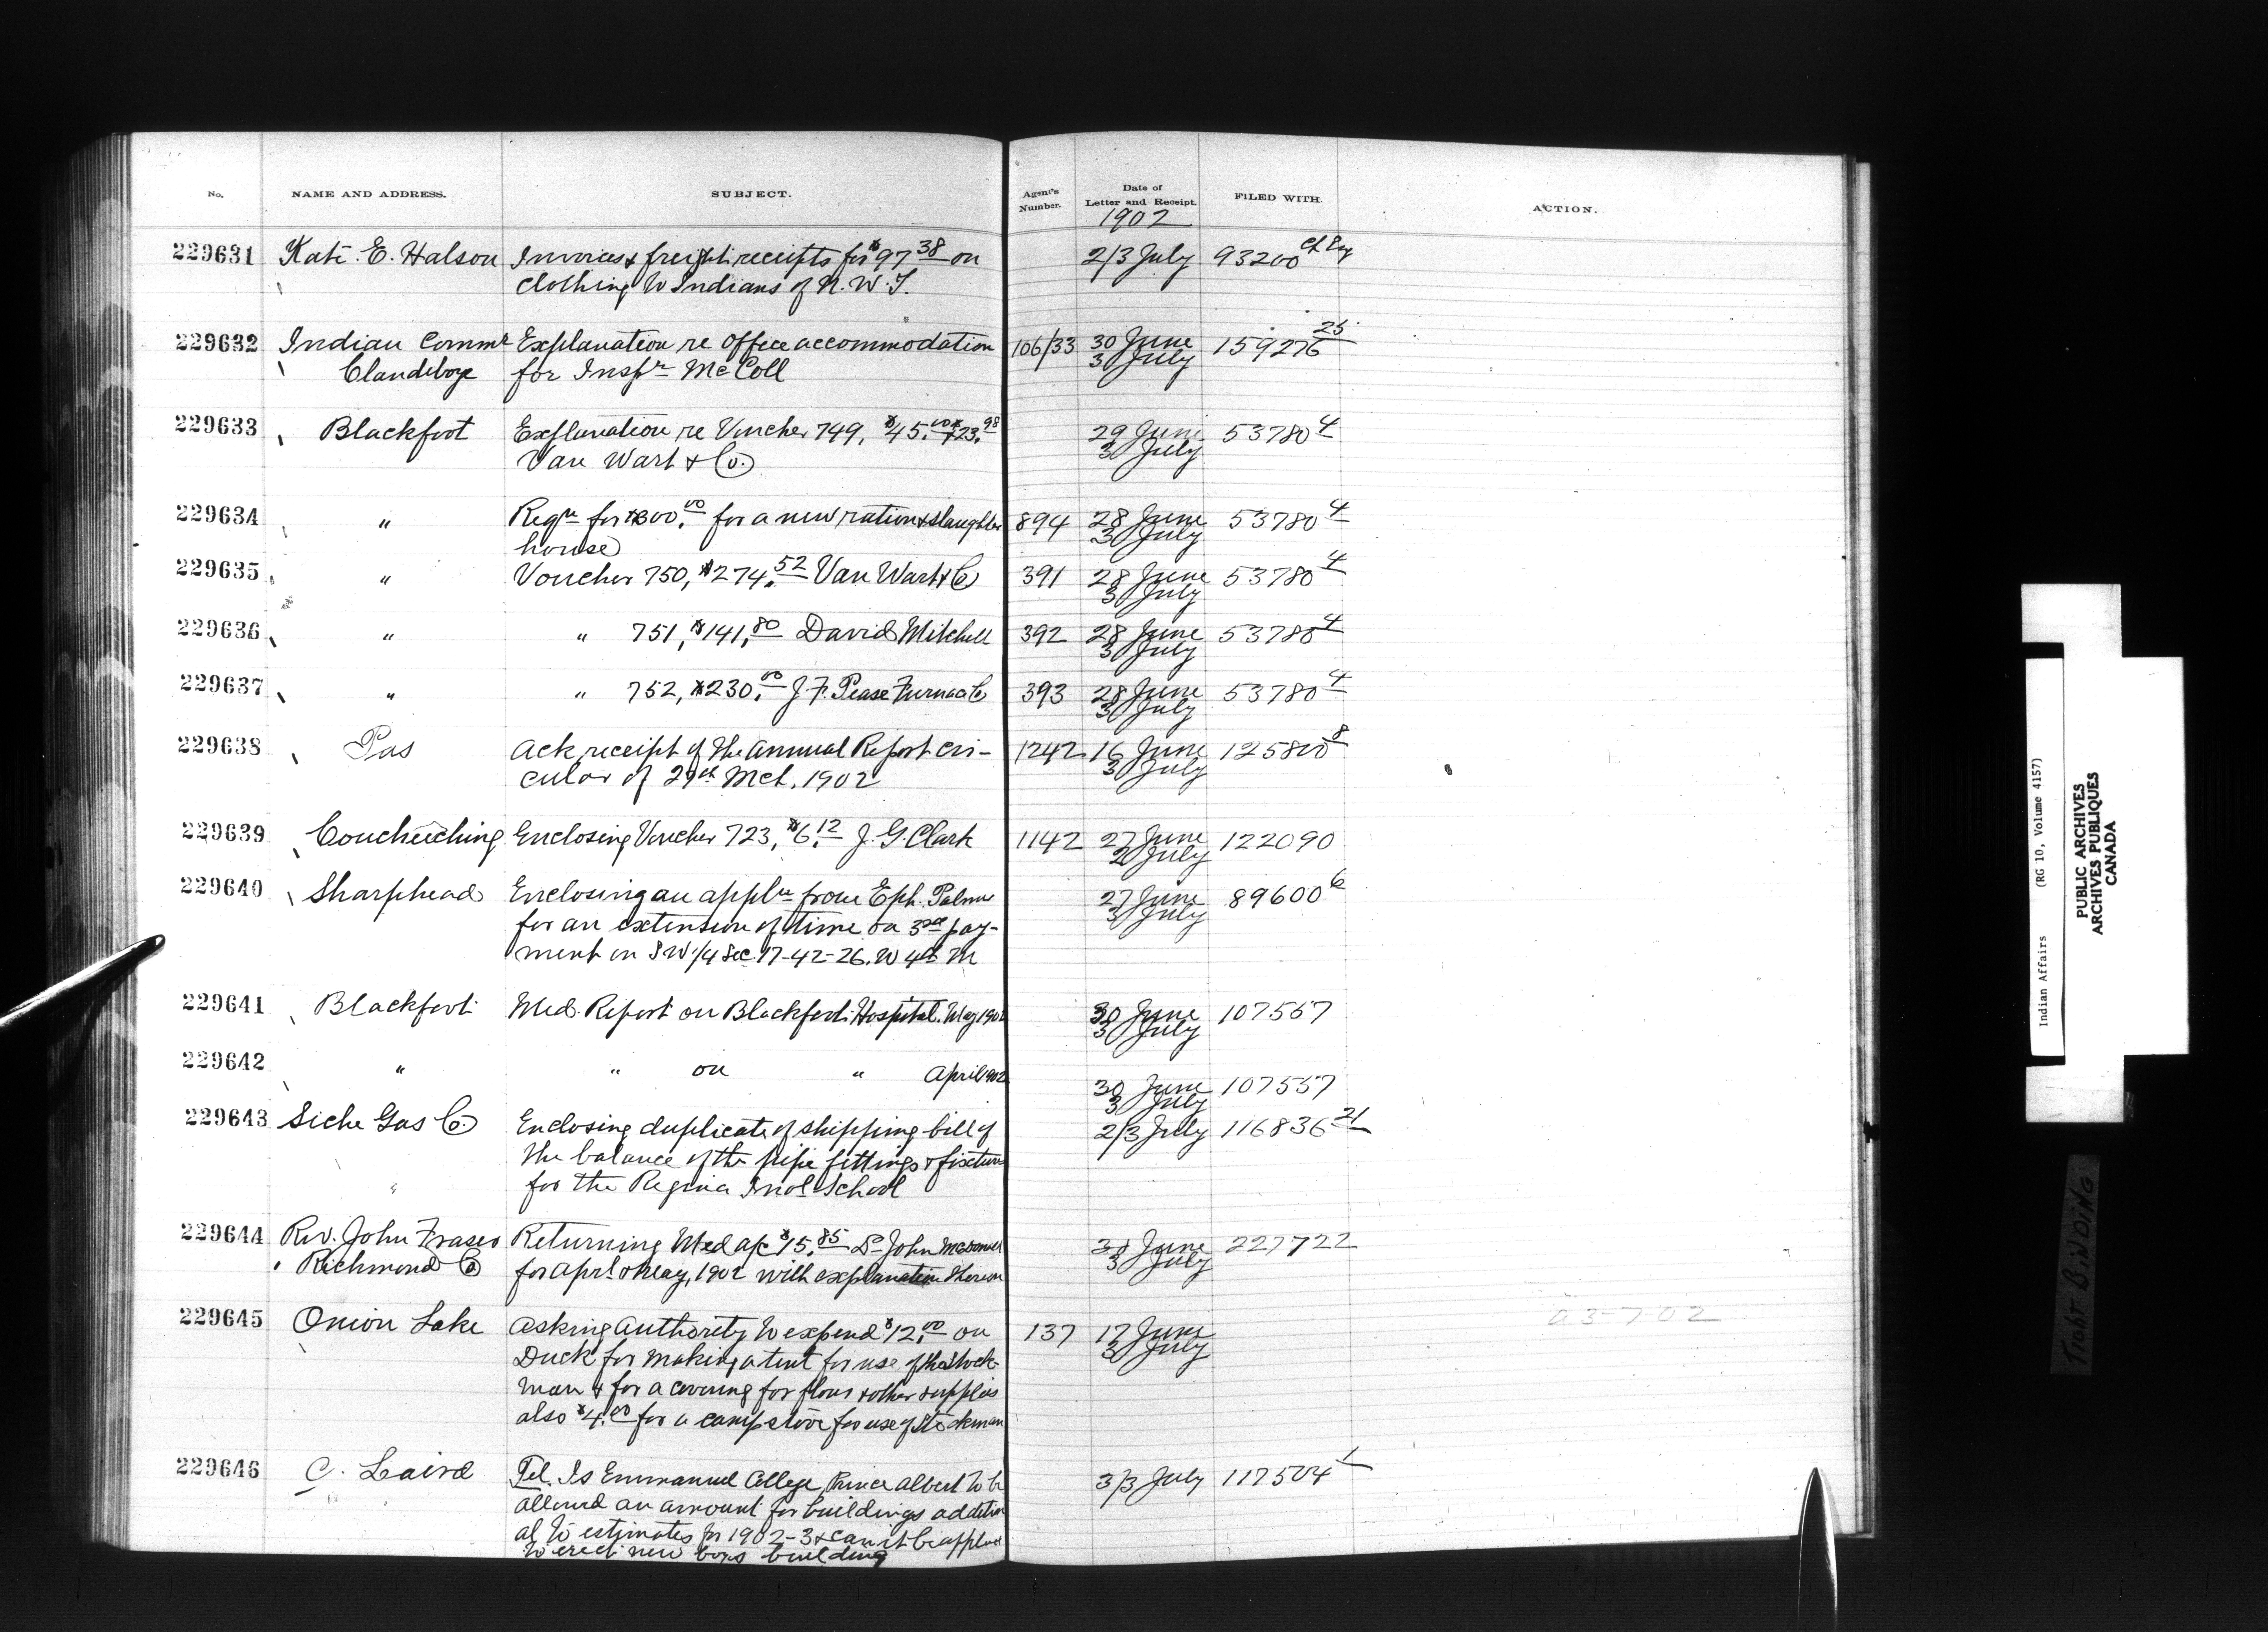 No. NAME AND ADDRESS. SUBJECT. Agent's Number. Date of Letter and Receipt. FILED WITH. ACTION.
1902
229631 Kate E. Halson Invoices & freight receipts for $97.38 on 2/3 July 93200
clothing to Indians of N.W.T.
229632 Indian Commr Explanation re Office accommodation 106/33 30 June 159276 25
Clandeboye for Inspr McColl 3 July
229633 Blackfoot Explanation re Voucher 749, $45.00 & $23.98 29 June 53780 4
Van Wart & Co. 3 July
229634 " Reqn for $300.00 for a new ration & slaughter 894 28 June 53780 4
house 3 July
229635 " Voucher 750, $274.52 Van Wart & Co 391 28 June 53780 4
3 July
229636 " " 751, $141.80 David Mitchell 392 28 June 53780 4
3 July
229637 " " 752, $230.00 J.F. Pease Furnace Co 393 28 June 53780 4
3 July
229638 Pas Ack receipt of the Annual Report cir- 1242 16 June 125800 8
cular of 29th Mch. 1902 3 July
229639 Coucheeching Enclosing Voucher 723, $6.12 J.G. Clark 1142 27 June 122090
2 July
229640 Sharphead Enclosing an appln from Eph. Palmer 27 June 89600 6
for an extension of time on 3rd pay- 3 July
ment on SW 1/4 Sec. 17-42-26. W 4th M
229641 Blackfoot Med. Report on Blackfoot Hospital. May 1902 30 June 107557
3 July
229642 " " on " April 1902 30 June 107557
3 July
229643 Siche Gas Co. Enclosing duplicate of shipping bill of 2/3 July 116836 21
the balance of the pipe fittings & fixtures
" for the Regina Indl School
229644 Rev. John Fraser Returning Med a/c $15.85 Dr John McDonald 30 June 227722
Richmond Co for Aprl & May, 1902 with explanation thereon 3 July
229645 Onion Lake Asking Authority to expend $12.00 on 137 17 June a 3-7-02
Duck for making a tent for use of the Stock- 3 July
man & for a covering for flour & other supplies
also $4.00 for a camp stove for use of Stockman
229646 C. Laird Tel. Is Emmanuel College, Prince Albert to be 3/3 July 117504 1
allowed an amount for buildings addition-
al to estimates for 1902-3 & can it be applied
to erect new boys building
Indian Affairs (RG 10, Volume 4157)
PUBLIC ARCHIVES
ARCHIVES PUBLIQUES
CANADA
TIGHT BINDING